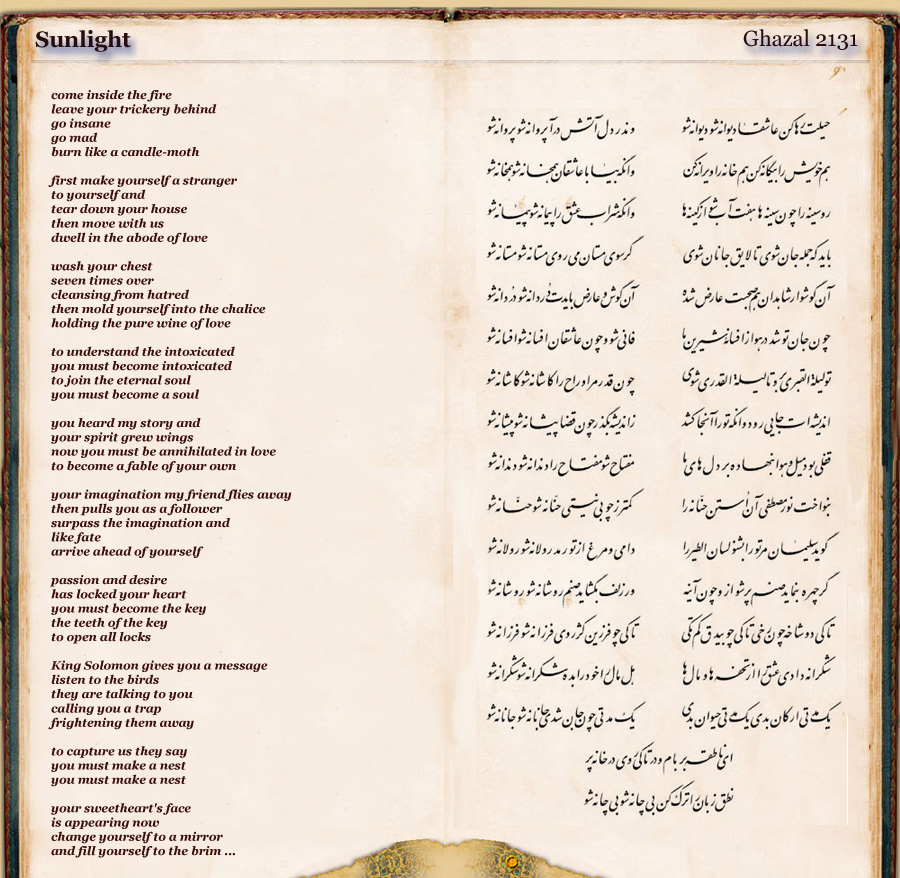 Sunlight
Ghazal 2131
come inside the fire
leave your trickery behind
go insane
go mad
burn like a candle-moth
first make yourself a stranger
to yourself and
tear down your house
then move with us
dwell in the abode of love
wash your chest
seven times over
cleansing from hatred
then mold yourself into the chalice
holding the pure wine of love
to understand the intoxicated
you must become intoxicated
to join the eternal soul
you must become a soul
you heard my story and
your spirit grew wings
now you must be annihilated in love
to become a fable of your own
your imagination my friend flies away
then pulls you as a follower
surpass the imagination and
like fate
arrive ahead of yourself
passion and desire
has locked your heart
you must become the key
the teeth of the key
to open all locks
King Solomon gives you a message
listen to the birds
they are talking to you
calling you a trap
frightening them away
to capture us they say
you must make a nest
you must make a nest
your sweetheart's face
is appearing now
change yourself to a mirror
and fill yourself to the brim ...
حیلت رها کن عاشقا دیوانه شو دیوانه شو وندر دل آتش درآ پروانه شو پروانه شو
هم خویش را بیگانه کن هم خانه را ویرانه کن وانگه بیا با عاشقان همخانه شو همخانه شو
رو سینه را چون سینه ها هفت آب شو از کینه ها وانگه شراب عشق را پیمانه شو پیمانه شو
باید که جمله جان شوی تا لایق جانان شوی گر سوی مستان می روی مستانه شو مستانه شو
آن گوشوار شاهدان هم صحبت عارض شده آن گوش و عارض بایدت دردانه شو دردانه شو
چون جان تو شد در هوا ز افسانه شیرین ما فانی شو و چون عاشقان افسانه شو افسانه شو
تو لیلة القبری برو تا لیلة القدری شوی چون قدر مر ارواح را کاشانه شو کاشانه شو
اندیشه ات جایی رود وانگه تو را آنجا کشد ز اندیشه بگذر چون قضا پیشانه شو پیشانه شو
قفلی بود میل و هوا بنهاده بر دل های ما مفتاح شو مفتاح را دندانه شو دندانه شو
بنواخت نور مصطفی آن استن حنانه را کمتر ز چوبی نیستی حنانه شو حنانه شو
گوید سلیمان مر تو را بشنو لسان الطیر را دامی و مرغ از تو رمد رو لانه شو رو لانه شو
گر چهره بنماید صنم پر شو از او چون آینه ور زلف بگشاید صنم رو شانه شو رو شانه شو
تا کی دوشاخه چون رخی تا کی چو بیذق کم تکی تا کی چو فرزین کژ روی فرزانه شو فرزانه شو
شکرانه دادی عشق را از تحفه ها و مال ها هل مال را خود را بده شکرانه شو شکرانه شو
یک مدتی ارکان بدی یک مدتی حیوان بدی یک مدتی چون جان شدی جانانه شو جانانه شو
ای ناطقه بر بام و در تا کی روی در خانه پر
نطق زبان را ترک کن بی چانه شو بی چانه شو